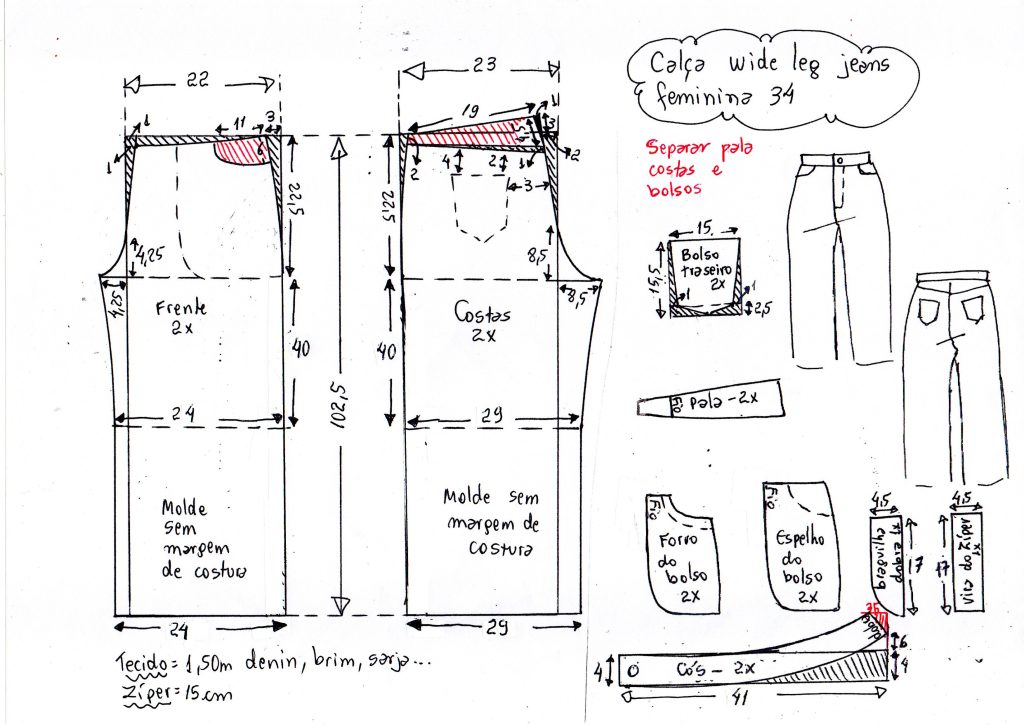 Calça wide leg jeans
feminina 34
Separar pala
costas e
bolsos
22
1
11
3
1
6
22,5
4,25
4,25
Frente
2x
40
24
Molde
sem
margem
de costura
24
102,5
23
19
1
3
4,5
2
1
2
4
2
3
22,5
8,5
8,5
Costas
2x
40
29
Molde sem
margem de
costura
29
15
15,5
Bolso
traseiro
2x
1
1
2,5
Fio
pala - 2x
Fio
Forro
do
bolso
2x
Fio
Espelho
do
bolso
2x
4,5
braguilha
dobra x1
17
4,5
17
Vira do Zíper
x1
dobra
6
4
4
Cós - 2x
41
Tecido = 1,50m denin, brim, sarja...
Zíper = 15cm